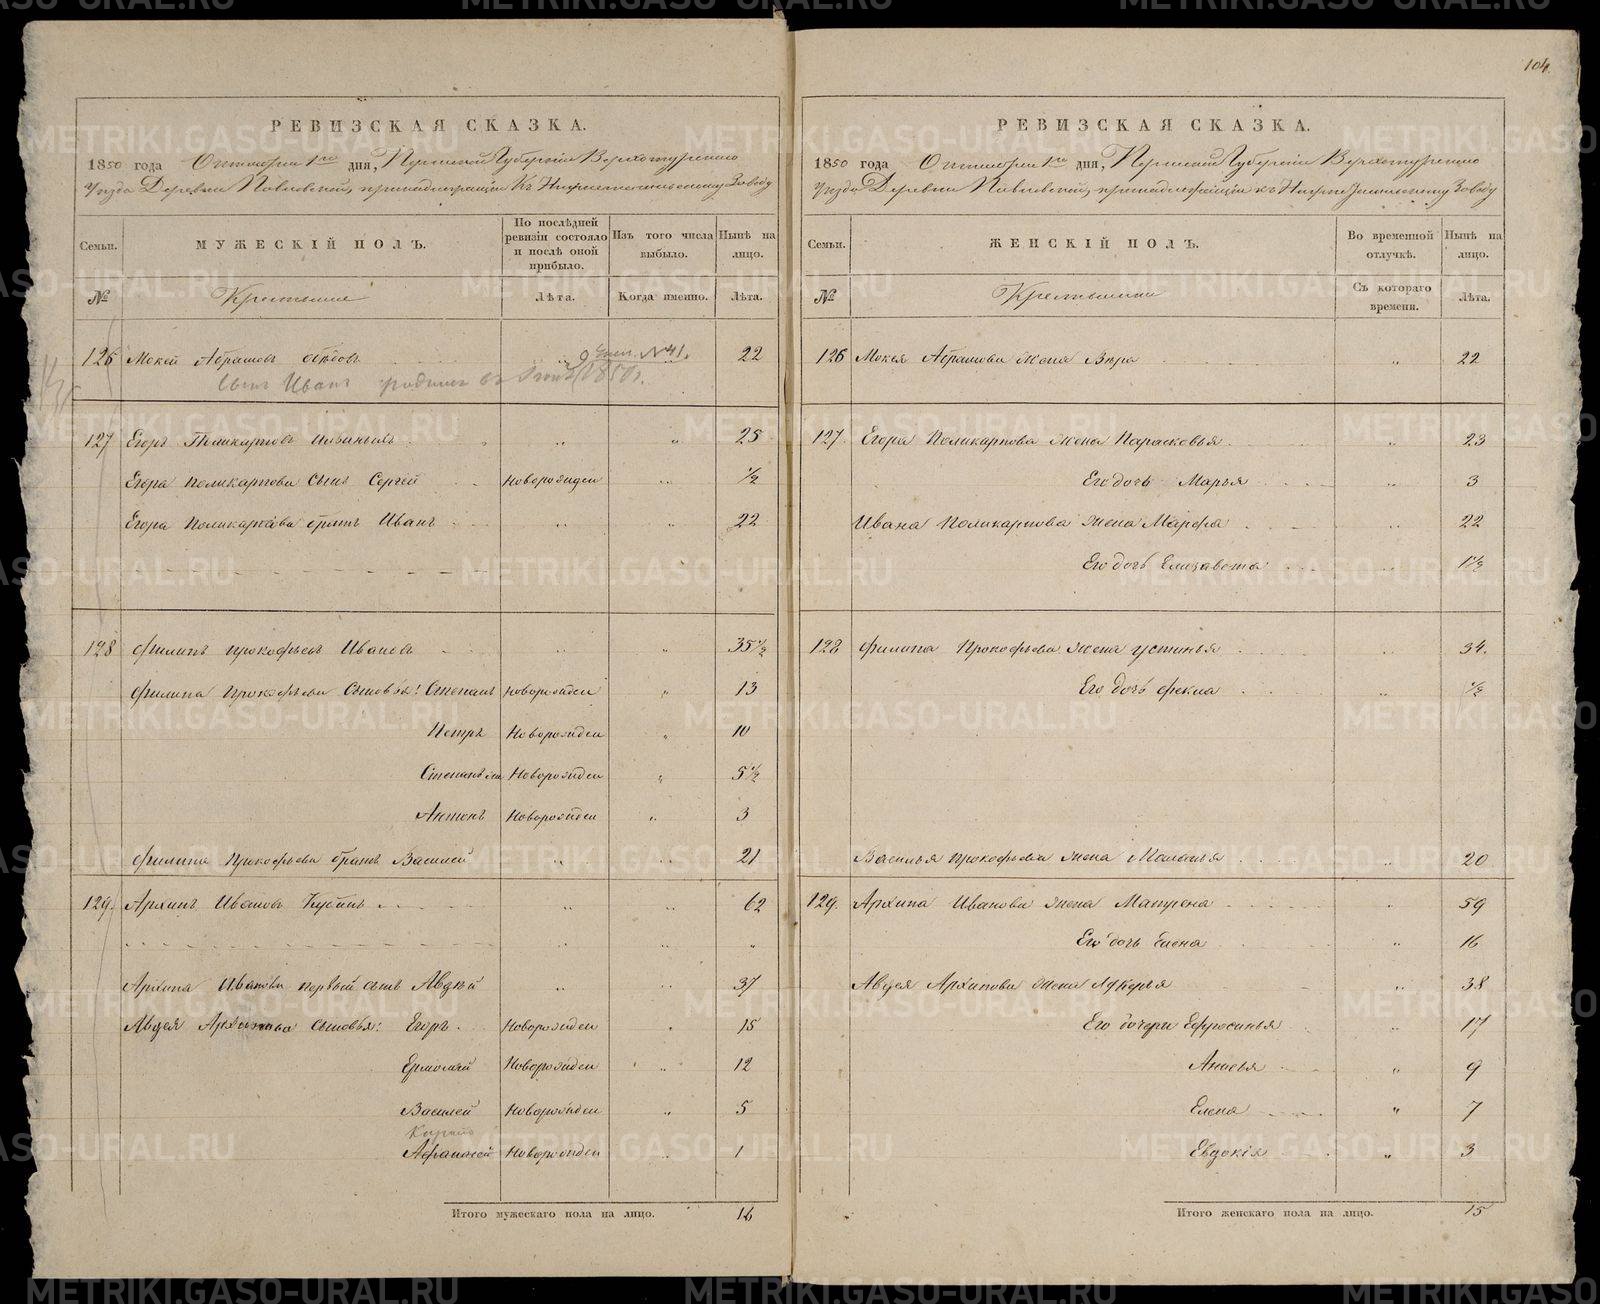 104
РЕВИЗСКАЯ СКАЗКА.
1850 года Октября 1го дня, Пермской Губерніи Верхотурскаго
Уезда Деревни Павловской, принадлежащій къ Заводу
Семьи. МУЖЕСКІЙ ПОЛЪ. По послѣдней ревизіи состояло и послѣ оной прибыло. Изъ того числа выбыло. Нынѣ на лицо.
№ Крестьяне Лѣта. Когда именно. Лѣта.
126 Мокей Абрамовъ 22
Сынъ Иванъ родился въ 1850
127 Егоръ Поликарповъ 25
Егора Поликарпова сынъ Сергей Новорожден 1/2
Егора Поликарпова братъ Иванъ 22
128 Филипъ Прокофьевъ Ивановъ 35 1/2
Филипа Прокофьева Сыновья: Степанъ новорожден 13
Петръ Новорожден 10
Степанъ Новорожден 5 1/2
Антонъ Новорожден 3
Филипа Прокофьева братъ Василей 21
129. Архипъ Ивановъ 62
Архипа Иванова первый сынъ Авдѣй 37
Авдея Архипова сыновья: Егоръ Новорожден 15
Ермолай Новорожден 12
Василей Новорожден 5
Афанасей Новорожден 1
Итого мужескаго пола на лицо. 16
РЕВИЗСКАЯ СКАЗКА.
1850 года Октября 1го дня, Пермской Губерніи Верхотурскаго
Уезда Деревни Павловской, принадлежащій къ Заводу
Семьи. ЖЕНСКІЙ ПОЛЪ. Во временной отлучкѣ. Нынѣ на лицо.
№ Крестьянки Съ котораго времени. Лѣта.
126 Мокея Абрамова жена Вѣра 22
127. Егора Поликарпова жена Парасковья 23
Его дочь Марья 3
Ивана Поликарпова жена Марфа 22
Его дочь Елизавета 1 1/2
128 Филипа Прокофьева жена Устинья 34.
Его дочь Фекла 1/2
Василья Прокофьева жена 20
129. Архипа Иванова жена Матрена 59
Его дочь Елена 16
Авдея Архипова жена Лукерья 38
Его дочери Ефросинья 17
Анисья 9
Елена 7
Евдокія 3
Итого женскаго пола на лицо. 15
METRIKI.GASO-URAL.RU